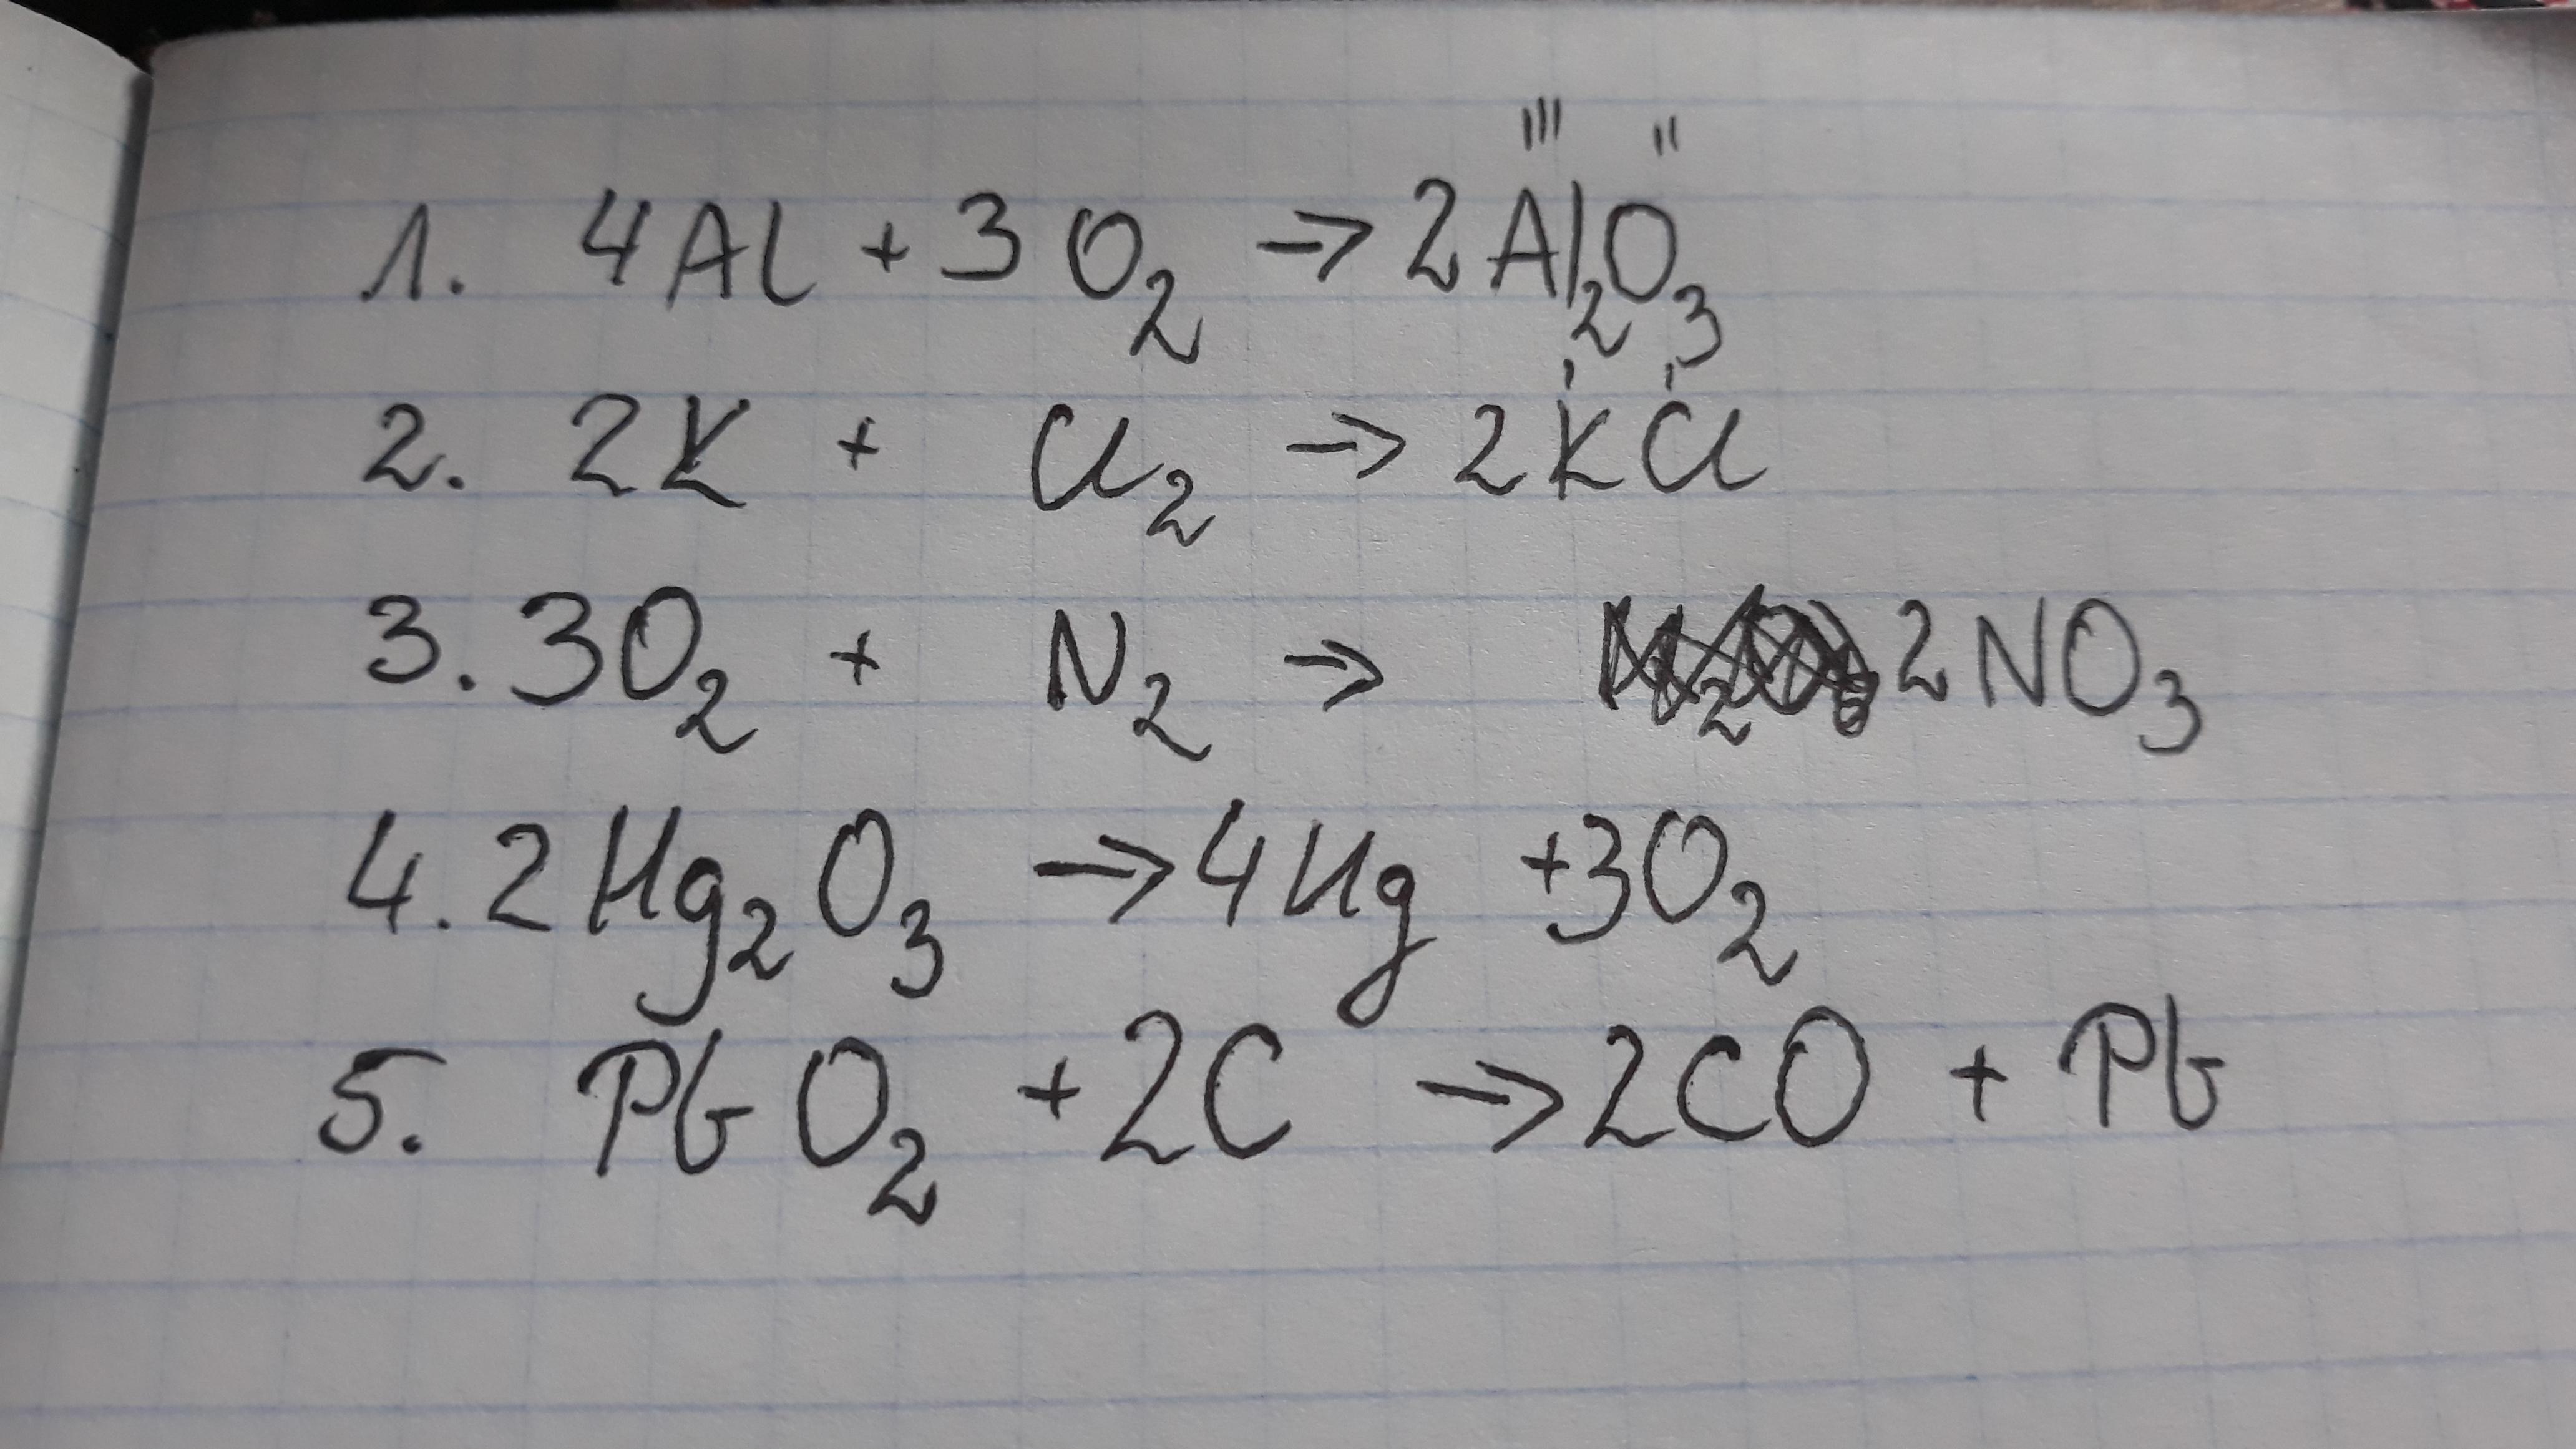 1. 4Al + 3O₂ → 2Al₂O₃
2. 2K + Cl₂ → 2KCl
3. 3O₂ + N₂ → 2NO₃
4. 2Hg₂O₃ → 4Hg + 3O₂
5. PbO₂ + 2C → 2CO + Pb